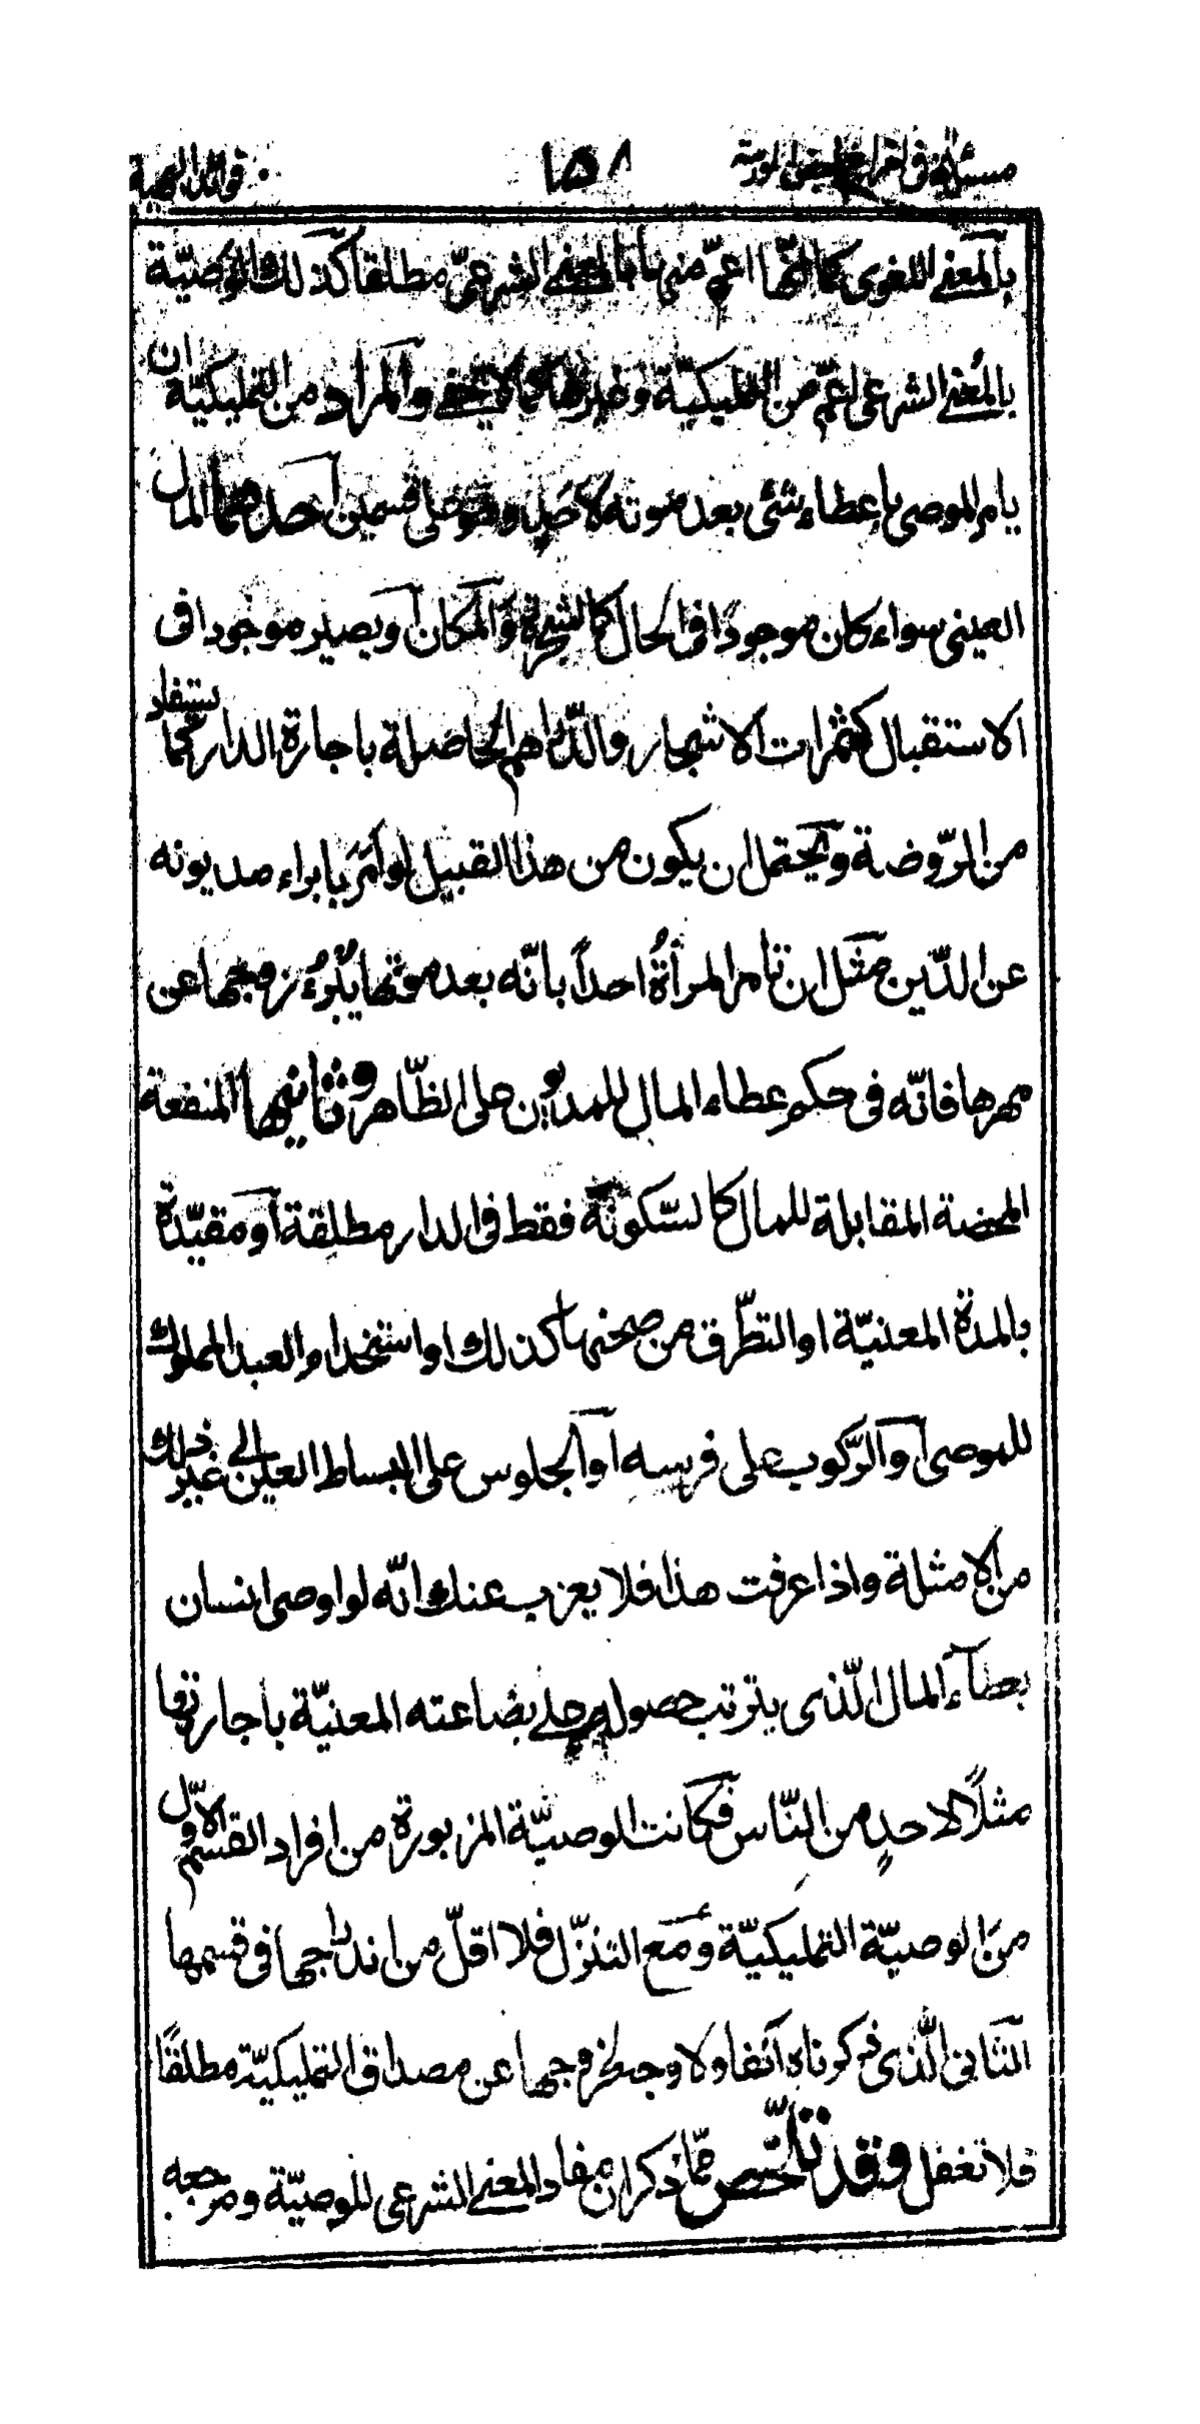 ١٥٨
بالمعنى اللغوى كما انّها اعمّ منها بالمعنى الشرعىّ مطلقا كذلك الوصيّة
بالمعنى الشرعى اعمّ من التمليكيّة وغيرها كما لا يخفى والمراد من التمليكيّة ان
يامر الموصى باعطاء شئى بعد موته لاحد وهو على قسمين احدهما المال
العينى سواء كان موجودًا فى الحال كالشجرة والمكان او يصير موجودا فى
الاستقبال كثمرات الاشجار والدّراهم الحاصلة باجارة الدار كما يستفاد
من الرّوضة ويحتمل ان يكون من هذا القبيل لو أمَرَ بابراء مديونه
عن الدّين مثل ان تامر المرأةُ احداً بانّه بعد موتها يُبْرِءُ زوجها عن
مهرها فانّه فى حكم عطاء المال للمديون على الظّاهر وثانيهما المنفعة
المحضة المقابلة للمال كالسّكونة فقط فى الدار مطلقة او مقيّدة
بالمدة المعنيّة او التطرّق من صحنها كذلك او استخدام العبد المملوك
للموصى او الرّكوب على فرسه او الجلوس على البساط العين الى غير ذلك
من الامثلة واذا عرفت هذا فلا يعزب عنك انّه لو اوصى انسان
بعطاء المال الّذى يترتب حصوله على بضاعته المعنيّة باجارتها
مثلاً لاحدٍ من النّاس فكانت الوصيّة المزبورة من افراد القسم الاوّل
من الوصيّة التمليكيّة ومع التنزّل فلا اقلّ من اندراجها فى قسمها
الثانى الّذى ذكرناه آنفا ولا وجه لخروجها عن مصداق التمليكيّة مطلقًا
فلا تغفل وقد تلخّص ممّا ذكر ان مفاد المعنى الشرعى للوصيّة ومرجعه